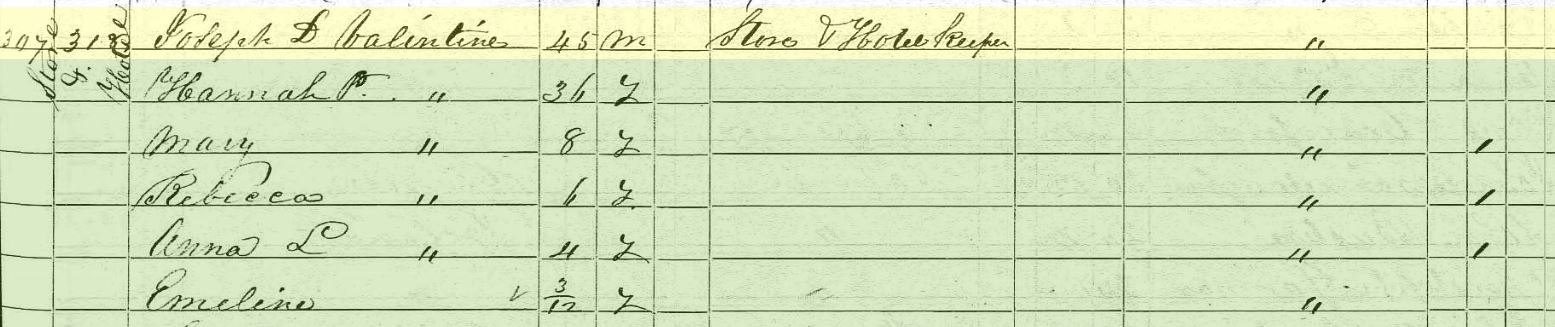 307 313 Joseph D Valintine 45 m Store & Hotel Keeper "
Store & Hotel
Hannah P. " 36 f "
Mary " 8 f " ,
Rebecca " 6 f " ,
Anna L " 4 f " ,
Emeline " 3/12 f "